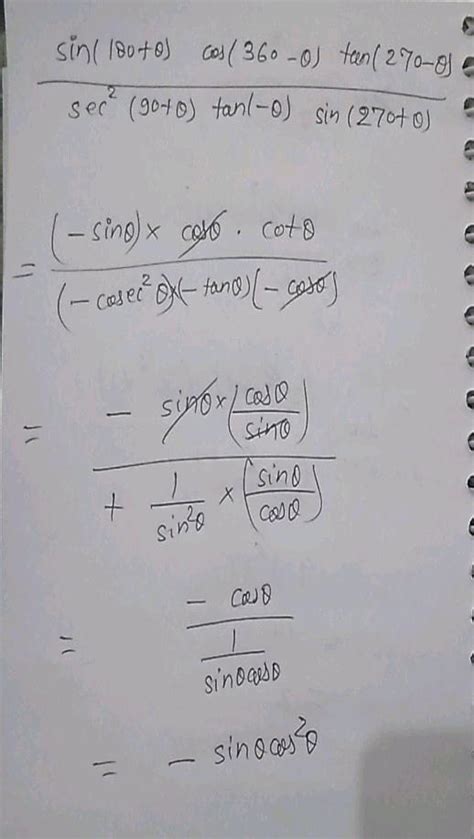 sin(180+θ) cos(360-θ) tan(270-θ)
sec²(90+θ) tan(-θ) sin(270+θ)
(-sinθ)× cosθ . cotθ
=
(-cosec²θ)×(-tanθ)(-cosθ)
- sinθ×(cosθ/sinθ)
=
+ 1/sin²θ × (sinθ/cosθ)
- cosθ
=
1
sinθcosθ
= - sinθcos²θ